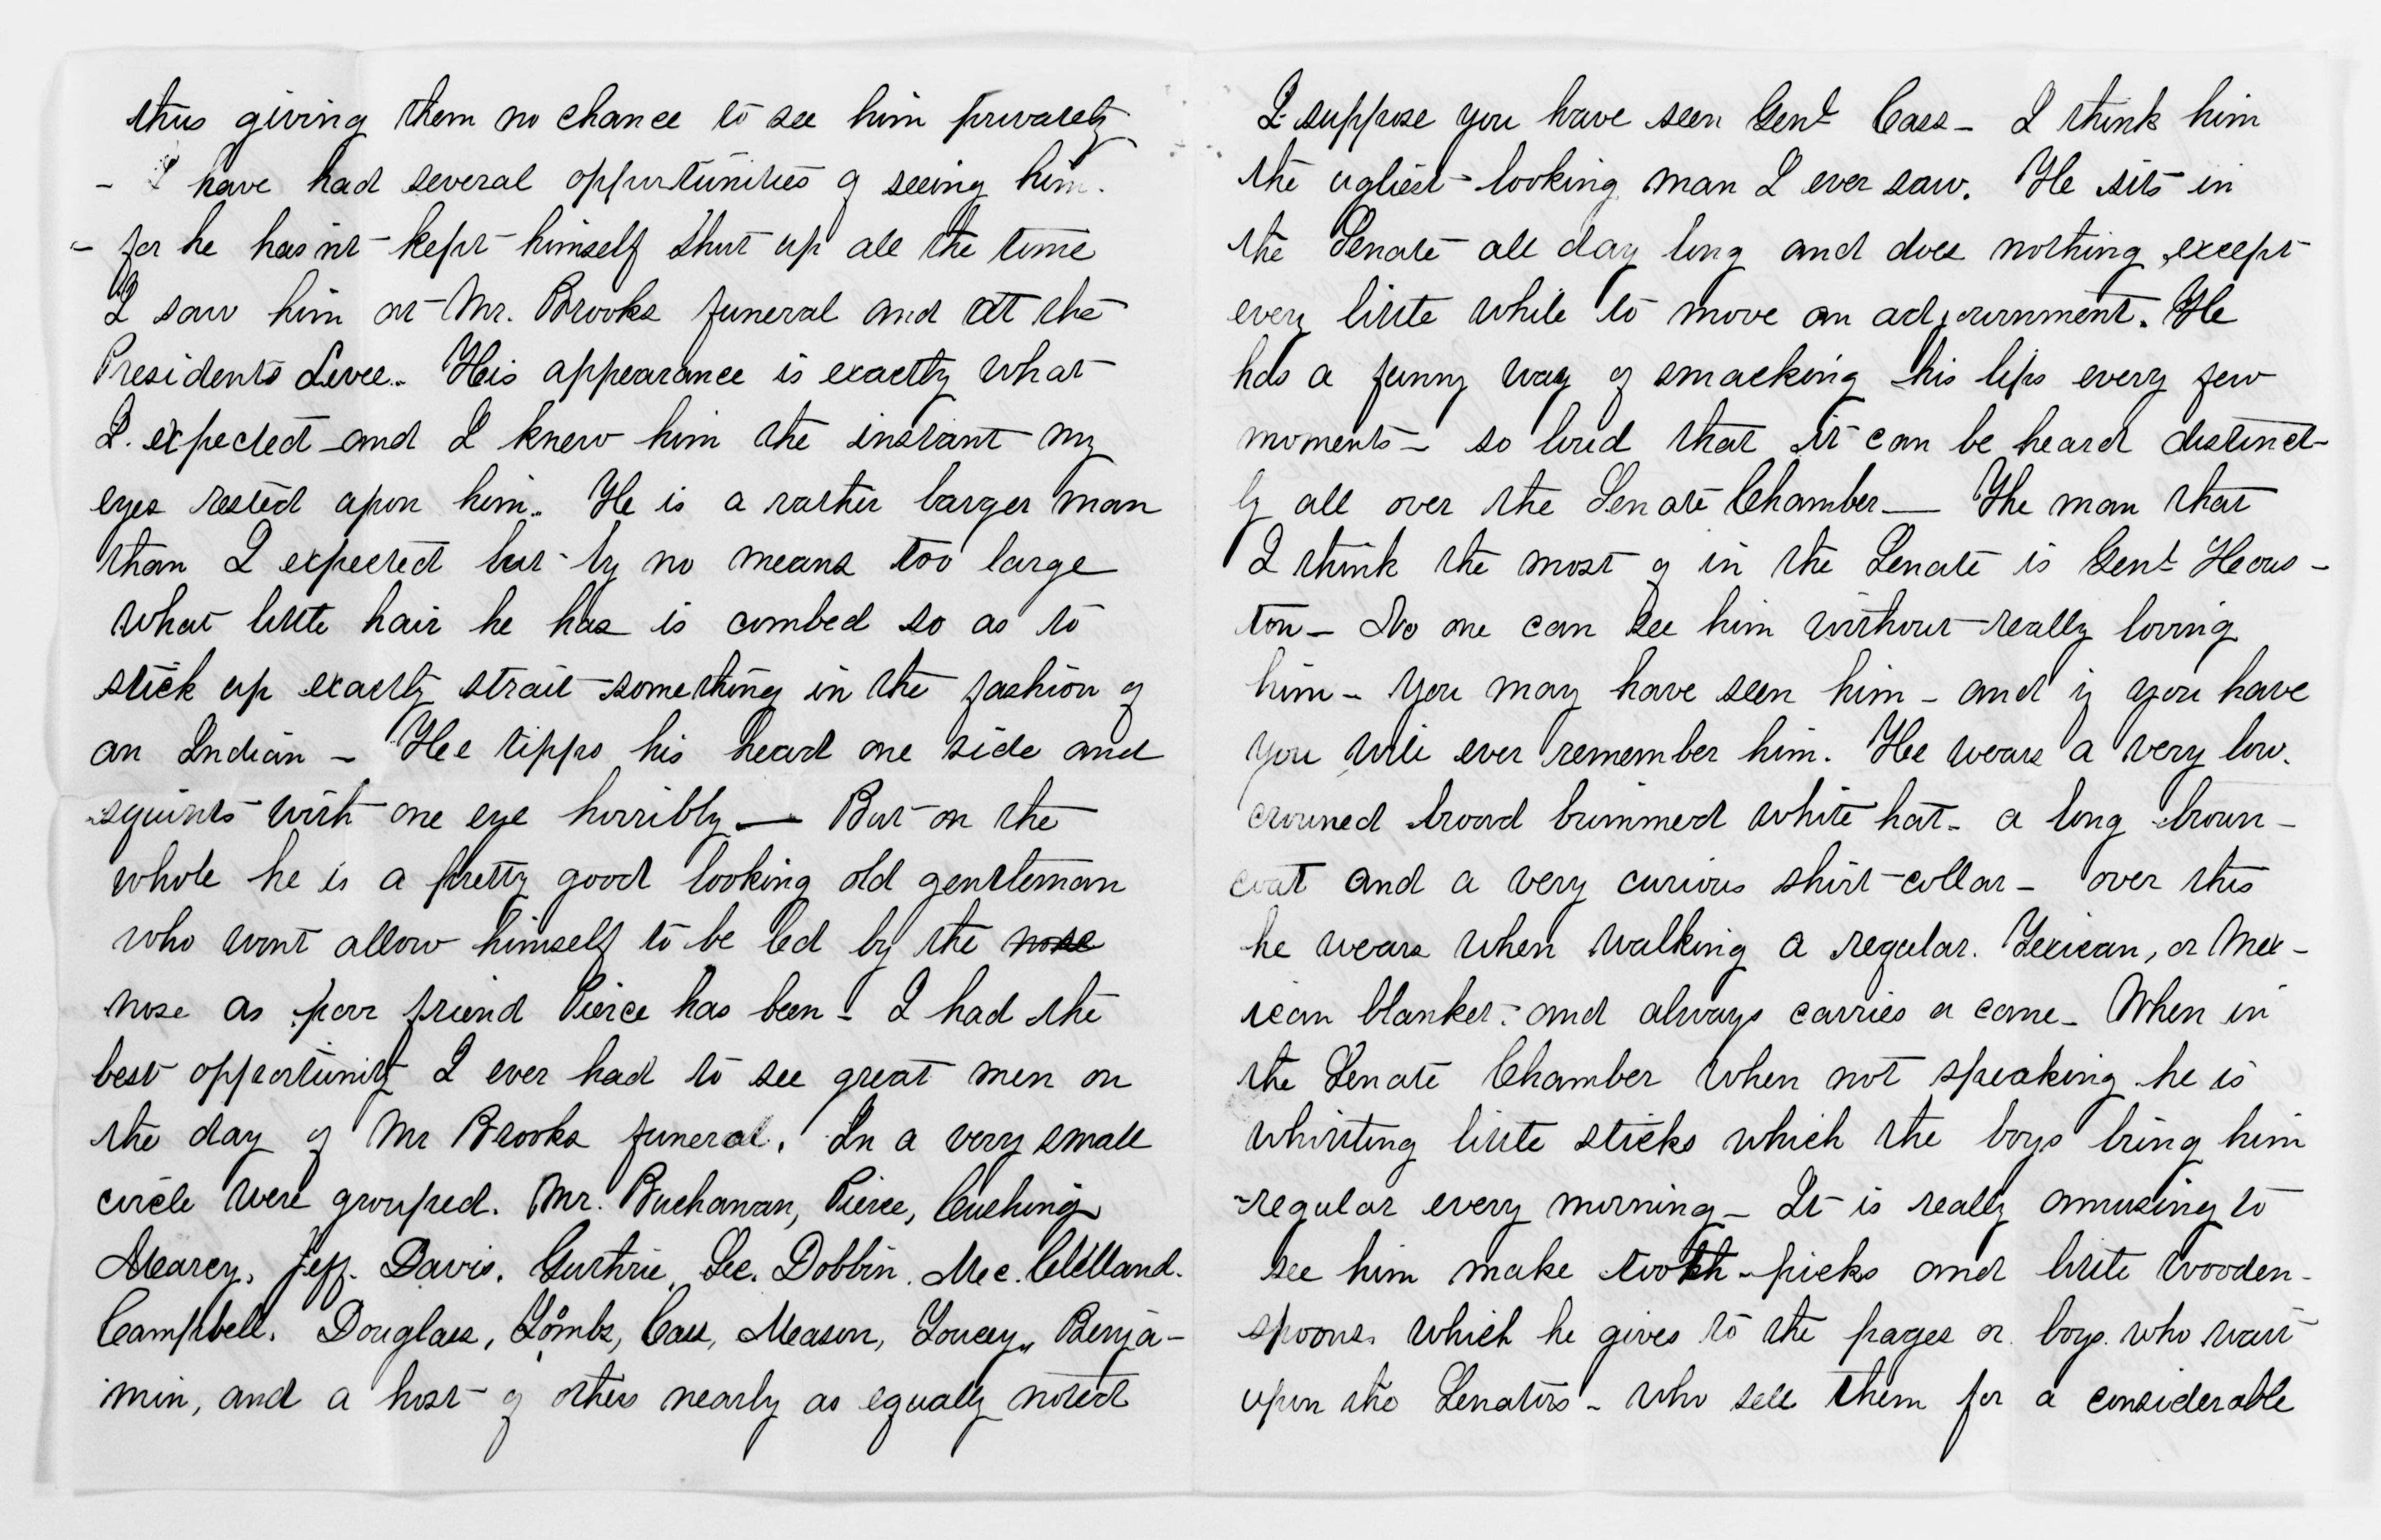 thus giving them no chance to see him privately
- I have had several oppurtunities of seeing him.
- for he has'nt kept himself shut up all the time
I saw him at Mr. Brooks funeral and at the
Presidents Levee. His appearance is exactly what
I. expected and I knew him the instant my
eyes rested upon him. He is a rather larger man
than I expected but by no means too large
What little hair he has is combed so as to
stick up exactly strait something in the fashion of
an Indian - Hee tipps his head one side and
squints with one eye horribly — But on the
whole he is a pretty good looking old gentleman
who wont allow himself to be led by the nose
nose as poor friend Pierce has been - I had the
best opportunity I ever had to see great men on
the day of Mr Brooks funeral. In a very small
circle were grouped. Mr. Buchanan, Pierce, Cushing
Mearcy, Jeff. Davis. Guthrie, Sec. Dobbin. Mc. Clelland.
Campbell. Douglass, Toombs, Cass, Meason, Toucey, Benja-
min, and a host of others nearly as equally noted
I suppose you have seen Genl Cass - I think him
the ugliest looking man I ever saw. He sits in
the Senate all day long and does nothing except
every little while to move an adjournment. He
has a funny way of smacking his lips every few
moments - so loud that it can be heard distinct-
ly all over the Senate Chamber — The man that
I think the most of in the Senate is Genl Hous-
ton - No one can see him without really loving
him - you may have seen him - and if you have
you will ever remember him. He wears a very low.
crouned broad brimmed white hat - a long broun -
coat and a very curious shirt-collar - over this
he wears when walking a regular. Texican, or Mex-
ican blanket - and always carries a cane - When in
the Senate Chamber when not speaking he is
whittling little sticks which the boys bring him
regular every morning - It is really amusing to
see him make tooth-picks and little wooden-
spoons. which he gives to the pages or boys. who wait
upon the Senators - who sell them for a considerable